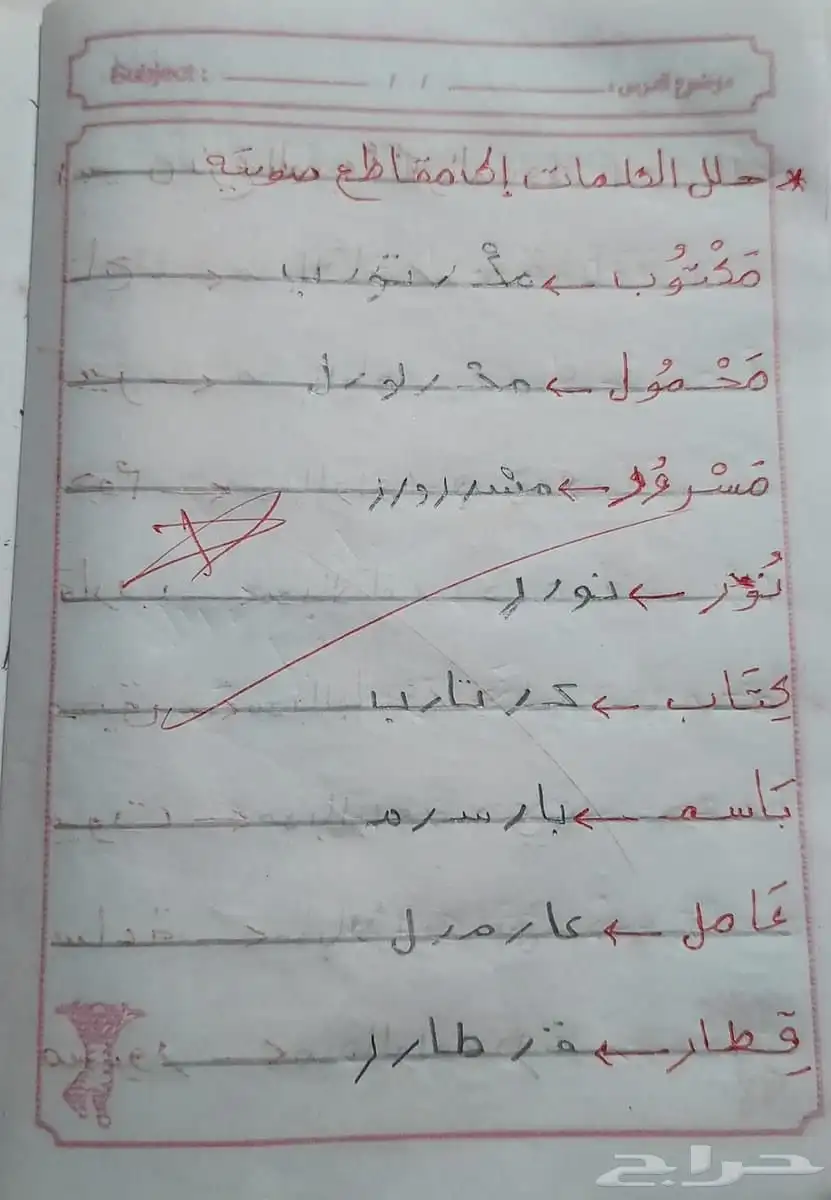 موضوع الدرس : / / Subject :
* حلل الكلمات إلى مقاطع صوتية
مَكْتُوب ← مكْ / تو / ب
مَحْمُول ← محْ / مو / ل
مَسْرُور ← مسْ / رو / ر
نُور ← نو / ر
كِتَاب ← كـ / تا / ب
بَاسم ← با / سـ / م
عَامل ← عا / مـ / ل
قِطار ← قـ / طا / ر
حراج